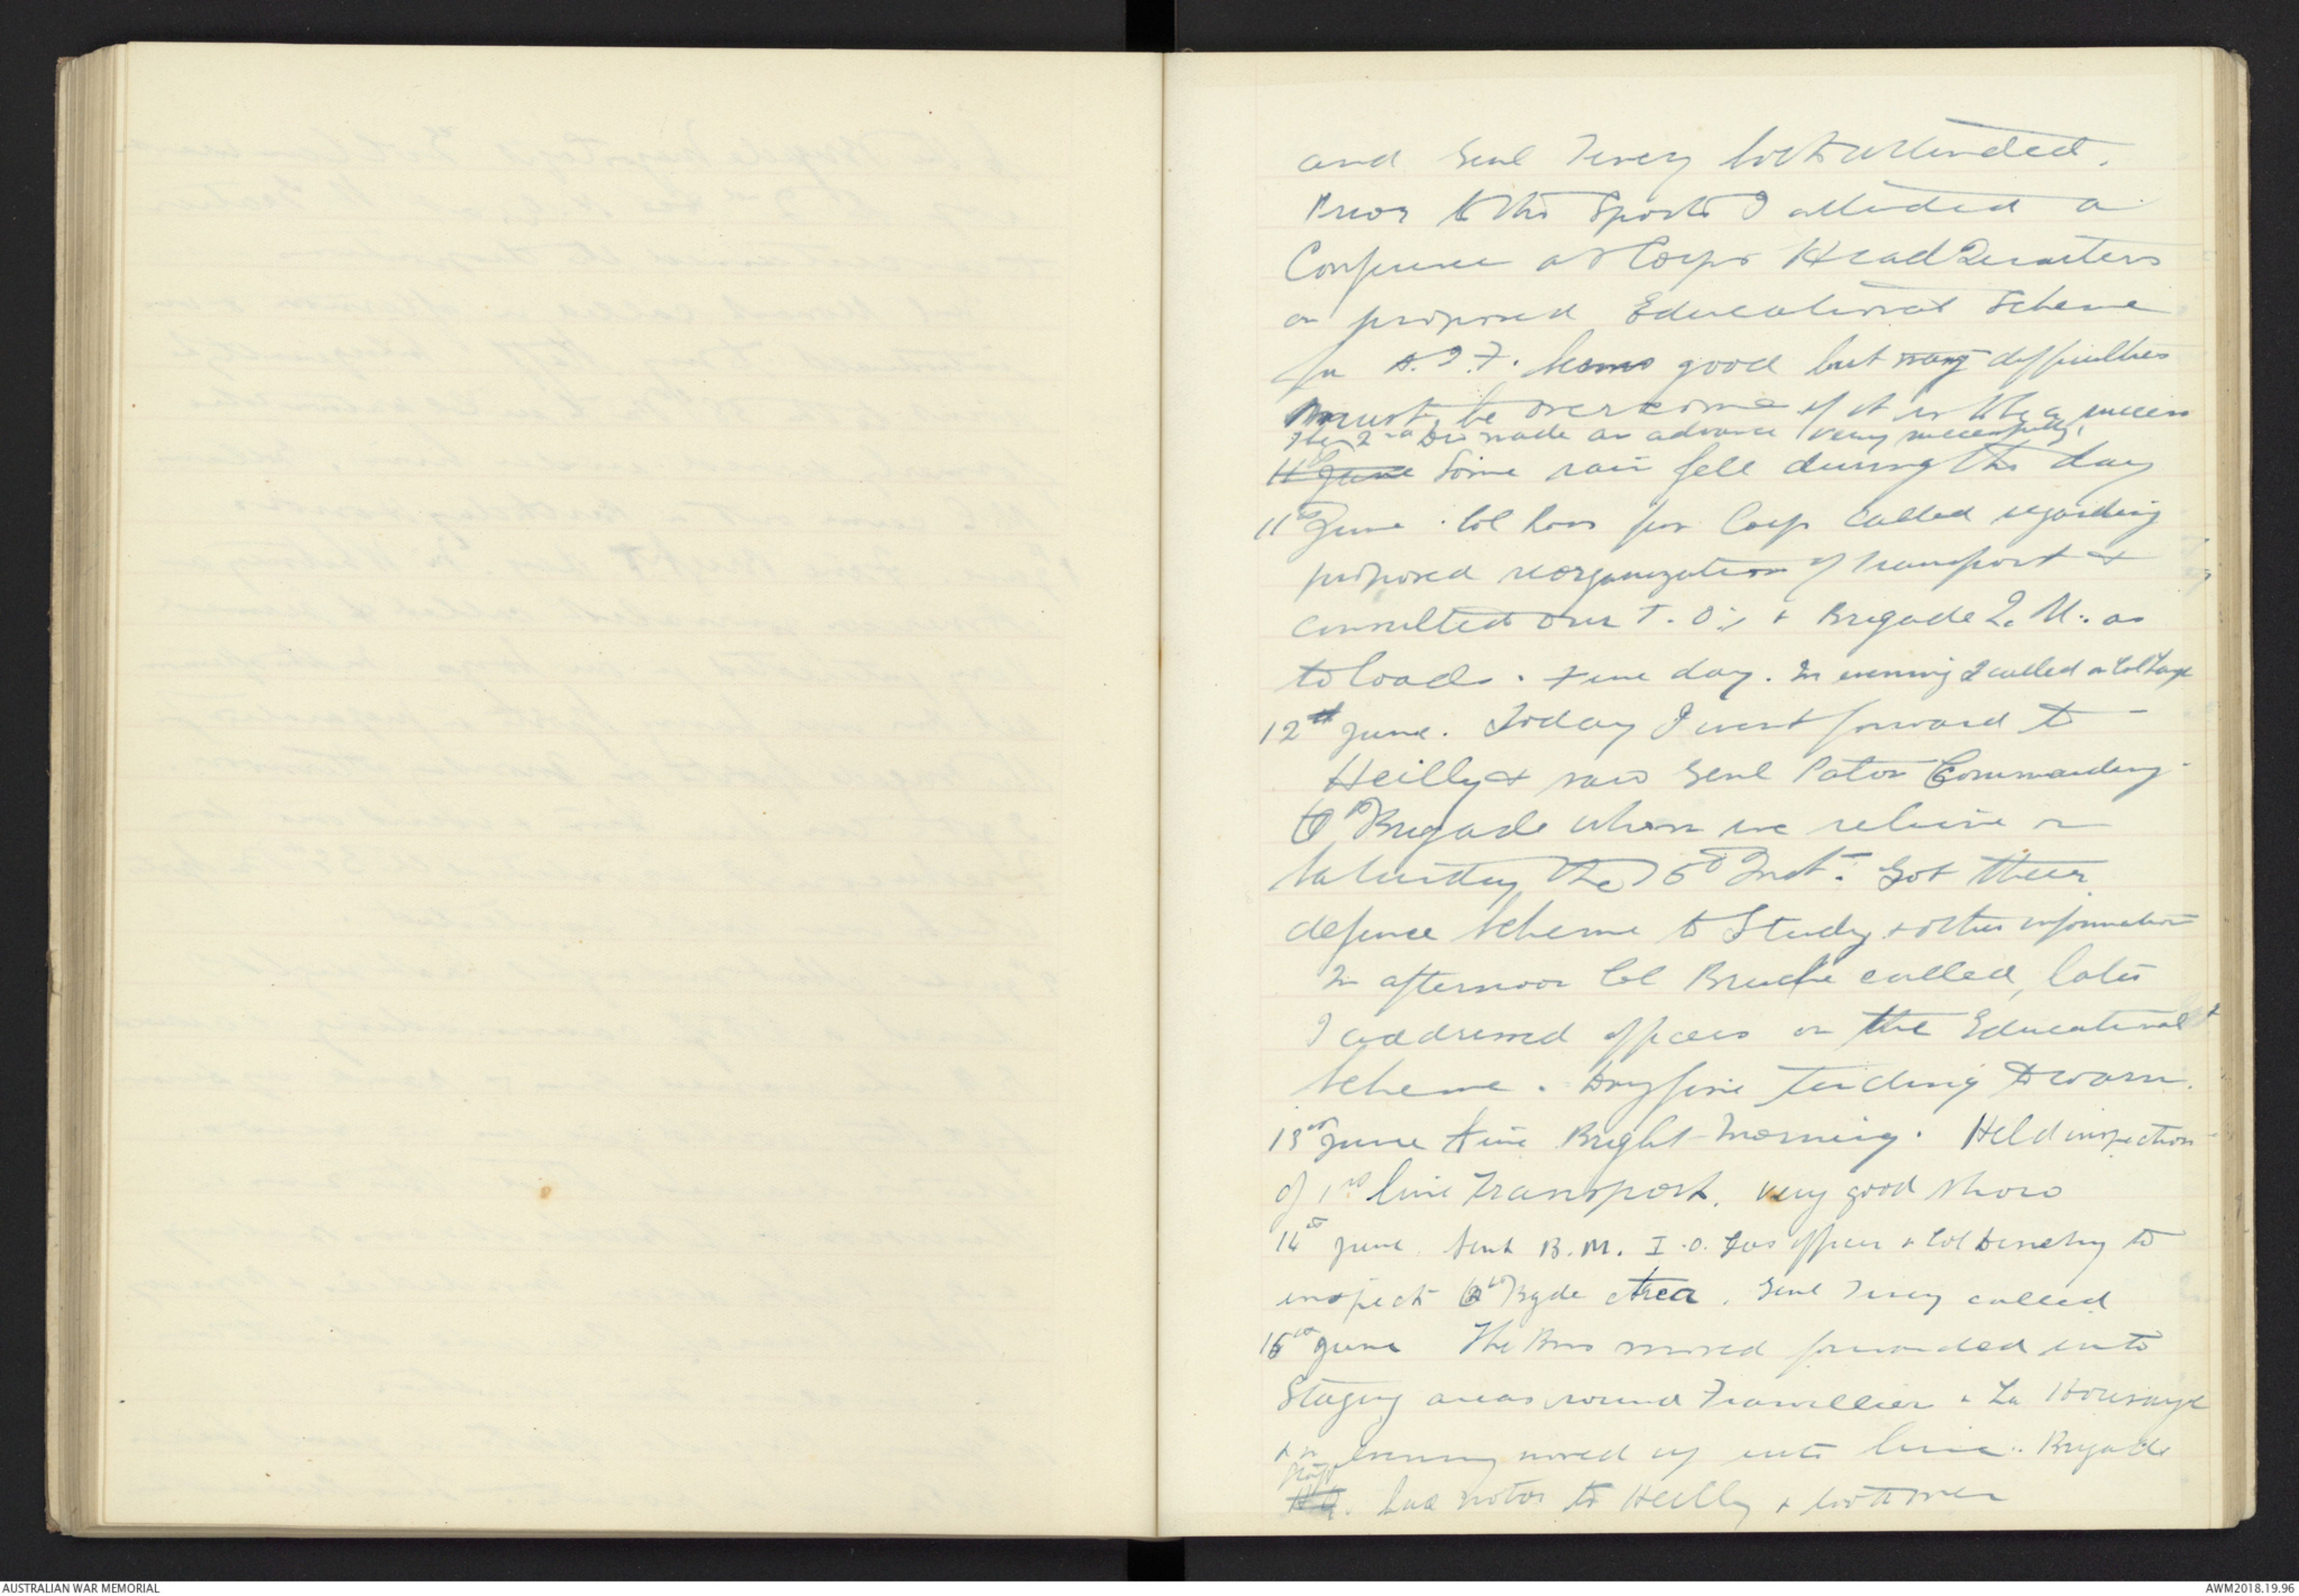 and Genl Tivey both attended.
Prior to the Sports I attended a
Conference at Corps Head Quarters
on proposed Educational Scheme
for A.I.F. Seems good but many difficulties
must be overcome if it is to be a success
The 2nd Div made an advance very successfully.
11th June Some rain fell during the day
11th June. Col Ross for Corps called regarding
proposed reorganization of transport &
consulted our T.O.s & Brigade Q.M. as
to loads. Fine day. In evening I called on Col
12th June. Today I went forward to
Heilly & saw Genl Paton Commanding
6th Brigade whom we relieve on
Saturday the 15th Inst. Got their
defence Scheme to Study & other information
In afternoon Col Bruche called, later
I addressed officers on the Educational
Scheme. Dry fine tending to warm.
13th June Fine Bright Morning. Held inspection
of 1st line Transport. very good show
14th June Sent B.M. I.O. Gas officer & Col Denehy to
inspect 6th Bgde Area. Genl Tivey called
15th June The Bns moved forwarded into
Staging areas round Franvillers & La Houssaye
& in evening moved up into line. Brigade
Staff
H.Q. had motor to Heilly & took over
AUSTRALIAN WAR MEMORIAL
AWM2018.19.96